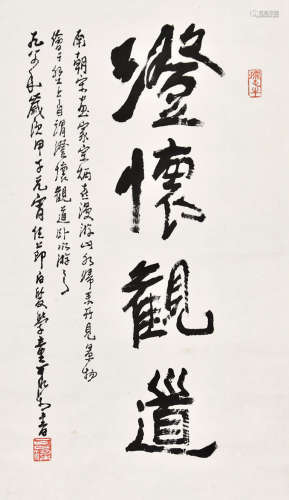 澄懷觀道
南朝宋畫家宗炳喜漫游山水歸來所見景物
繪于壁上自謂澄懷觀道卧以游之
九八四年歲次甲子元宵佳節白髮學童